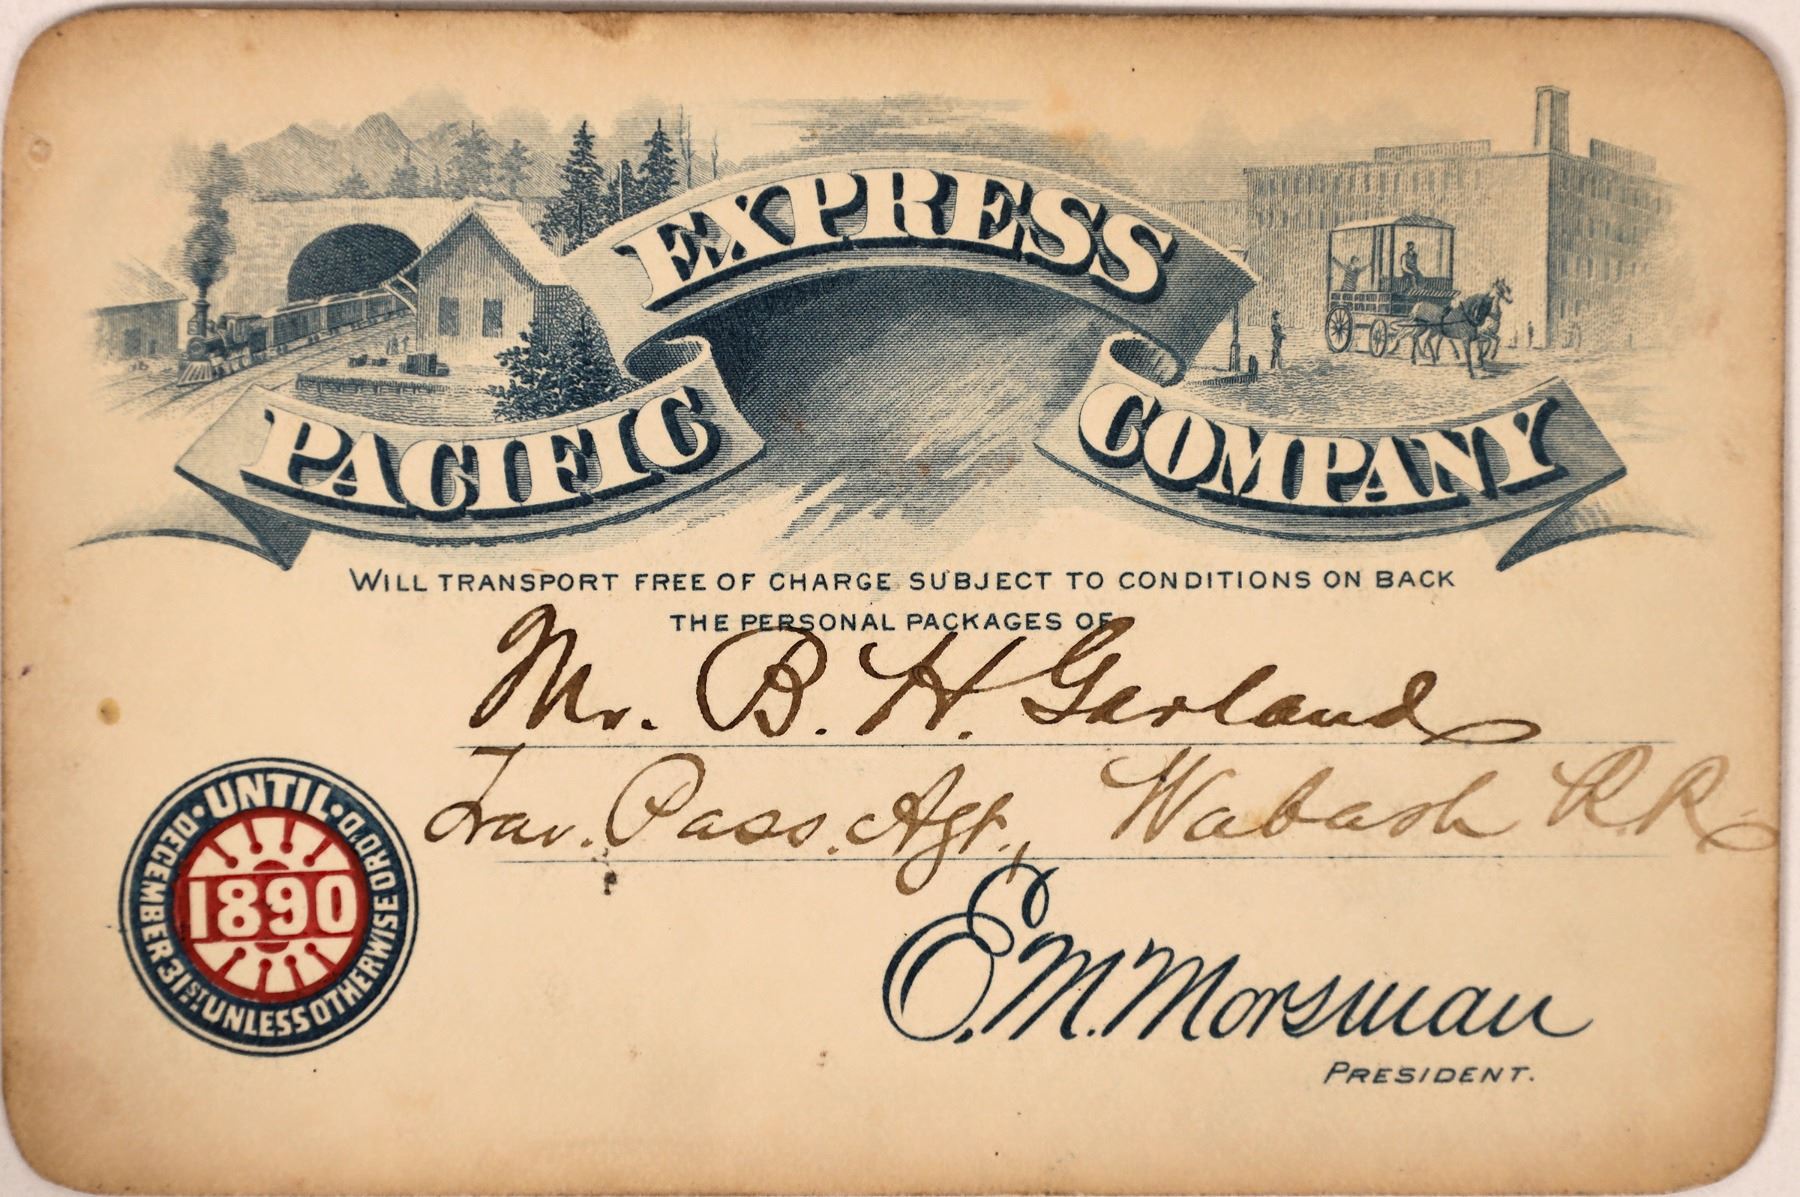 PACIFIC EXPRESS COMPANY
WILL TRANSPORT FREE OF CHARGE SUBJECT TO CONDITIONS ON BACK
THE PERSONAL PACKAGES OF
Mr. B. H. Garland
Trav. Pass. Agt., Wabash R.R.
UNTIL DECEMBER 31ST UNLESS OTHERWISE ORD'D.
1890
E. M. Morsman
PRESIDENT.